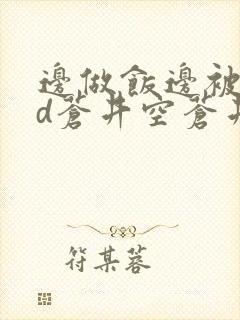 邊做飯邊被
d蒼井空蒼井
符某蓉